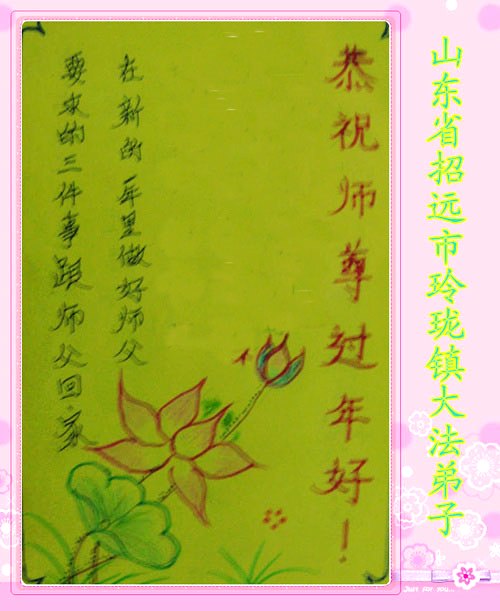 山东省招远市玲珑镇大法弟子
恭祝师尊过年好！
在新的一年里做好师父
要求的三件事跟师父回家
Just for you...